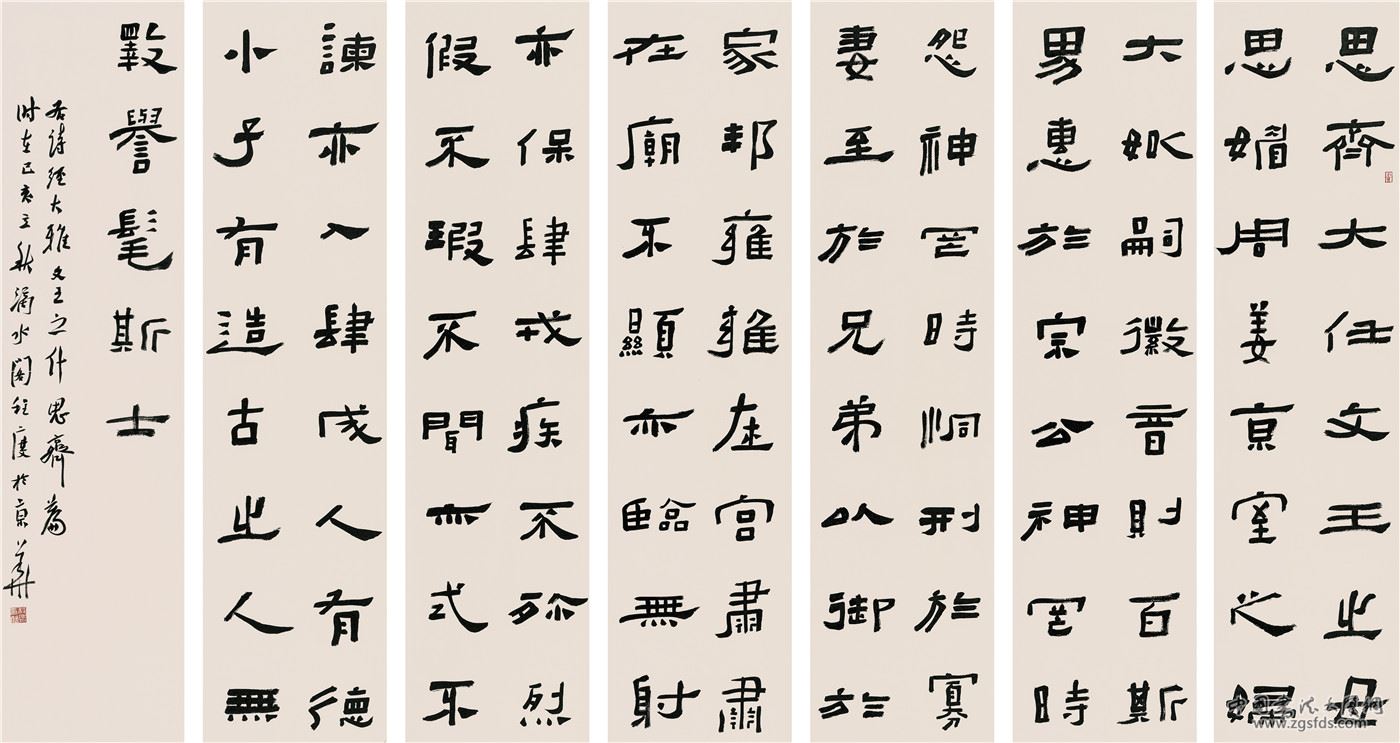 思齊大任文王之母
思媚周姜京室之婦
大姒嗣徽音則百斯
男惠於宗公神罔時
怨神罔時恫刑於寡
妻至於兄弟以御於
家邦雍雍在宮肅肅
在廟不顯亦臨無射
亦保肆戎疾不殄烈
假不瑕不聞亦式不
諫亦入肆成人有德
小子有造古之人無
斁譽髦斯士
右詩經大雅文王之什思齊篇
时在己亥立秋水閣於京華
www.zgsfds.com